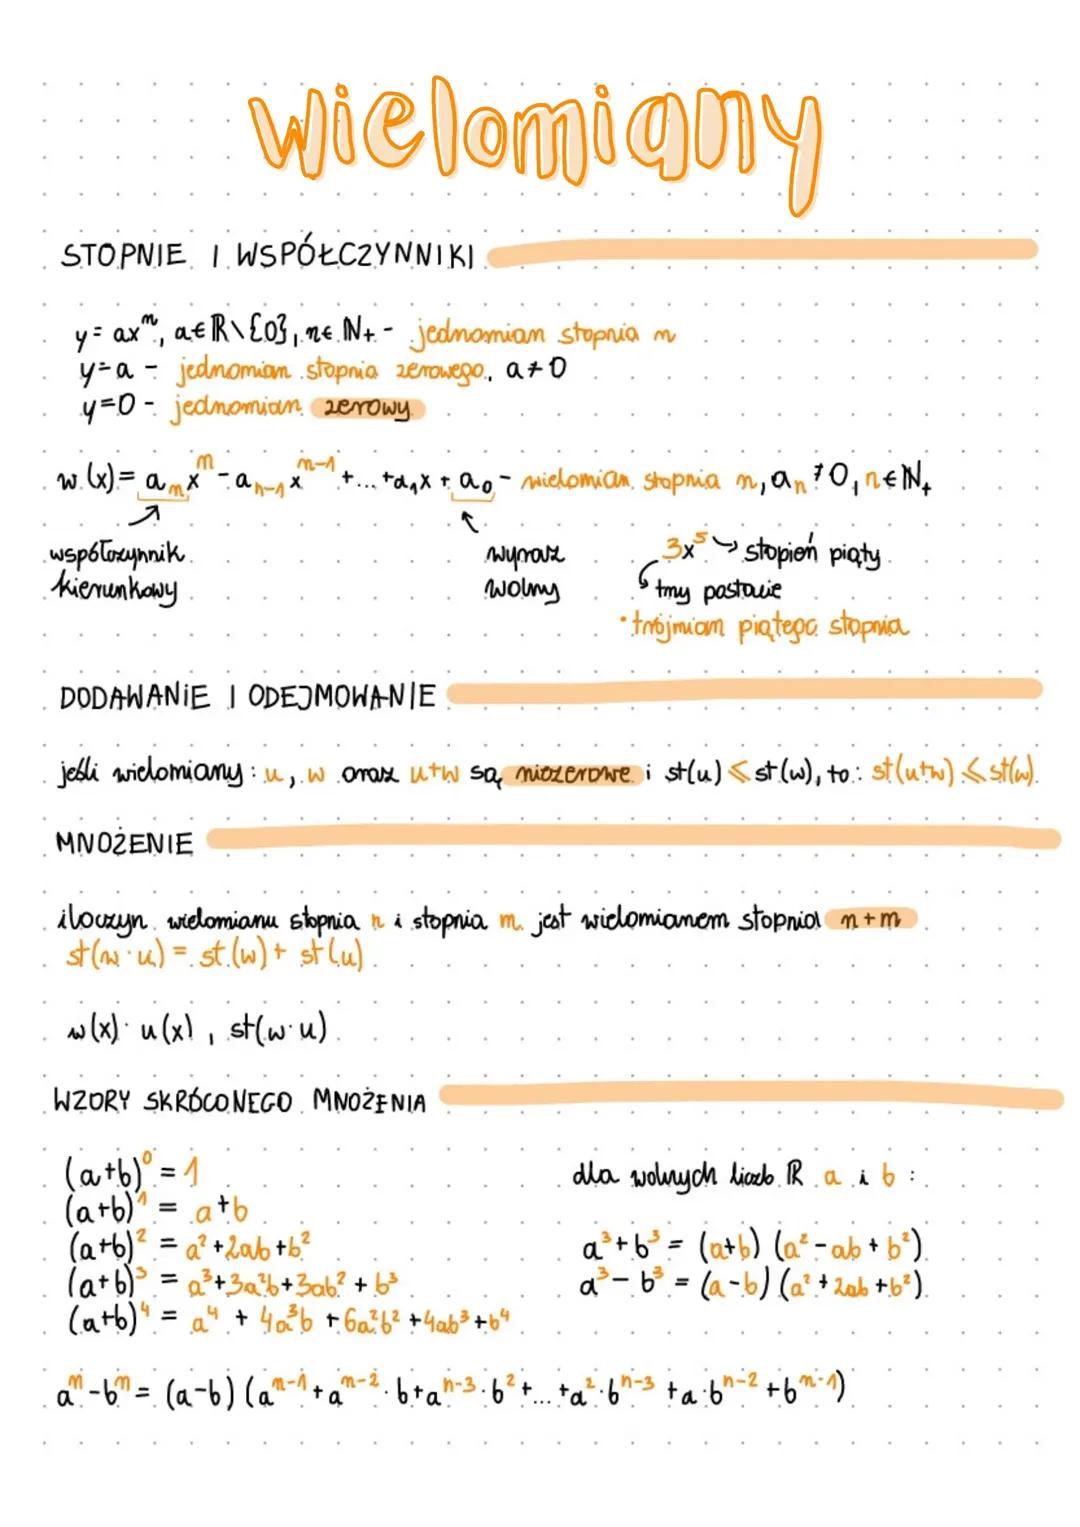 wielomiany
STOPNIE I WSPÓŁCZYNNIKI
y = axⁿ, a∈ℝ\{0}, n∈ℕ₊ - jednomian stopnia n
y=a - jednomian stopnia zerowego, a≠0
y=0 - jednomian zerowy
w(x) = aₙxⁿ - aₙ₋₁xⁿ⁻¹ + ... + a₁x + a₀ - wielomian stopnia n, aₙ≠0, n∈ℕ₊
współczynnik kierunkowy
wyraz wolny
3x⁵ → stopień piąty
trójmian piątego stopnia
DODAWANIE I ODEJMOWANIE
jeśli wielomiany: u, w oraz u+w są niezerowe i st(u) ⩽ st(w), to: st(u+w) ⩽ st(w).
MNOŻENIE
iloczyn wielomianu stopnia n i stopnia m jest wielomianem stopnia n+m
st(w·u) = st(w) + st(u)
w(x)·u(x), st(w·u)
WZORY SKRÓCONEGO MNOŻENIA
(a+b)⁰ = 1
(a+b)¹ = a+b
(a+b)² = a²+2ab+b²
(a+b)³ = a³+3a²b+3ab²+b³
(a+b)⁴ = a⁴ + 4a³b + 6a²b² + 4ab³ + b⁴
dla wolnych liczb ℝ a i b:
a³+b³ = (a+b)(a²-ab+b²)
a³-b³ = (a-b)(a²+2ab+b²)
aⁿ-bⁿ = (a-b)(aⁿ⁻¹+aⁿ⁻²·b+aⁿ⁻³·b²+...+a²·bⁿ⁻³+a·bⁿ⁻²+bⁿ⁻¹)